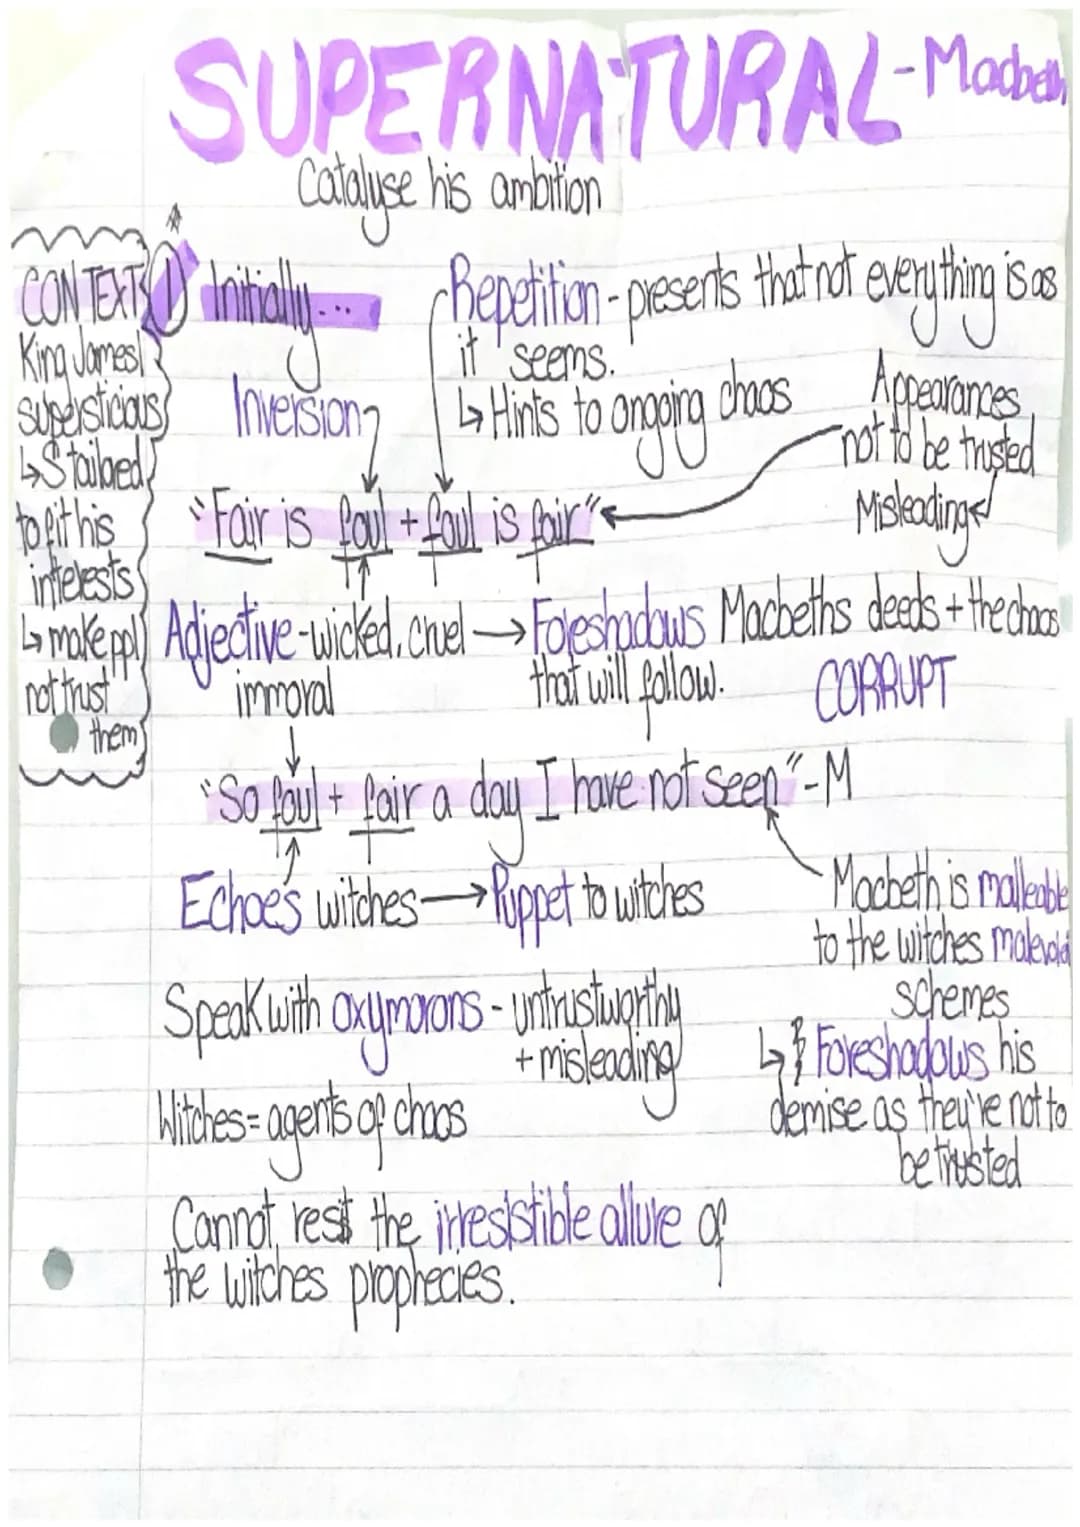 SUPERNATURAL - Macbeth
Catalyse his ambition
CONTEXT
King James I
supersticious
↳ Stailored
to fit his
interests
↳ make ppl
not trust
them
1 Initially...
Repetition - presents that not everything is as
it seems.
↳ Hints to ongoing chaos
Inversion
Appearances
not to be trusted
Misleading
"Fair is foul + foul is fair"
Adjective - wicked, cruel → Foreshadows Macbeths deeds + the chaos
immoral
that will follow.
CORRUPT
"So foul + fair a day I have not seen" - M
Echoes witches → Puppet to witches
Macbeth is malleable
to the witches
schemes
↳ Foreshadows his
demise as they're not to
be trusted
Speak with oxymorons - untrustworthy
+ misleading
Witches = agents of chaos
Cannot resist the irresistible allure of
the witches prophecies.